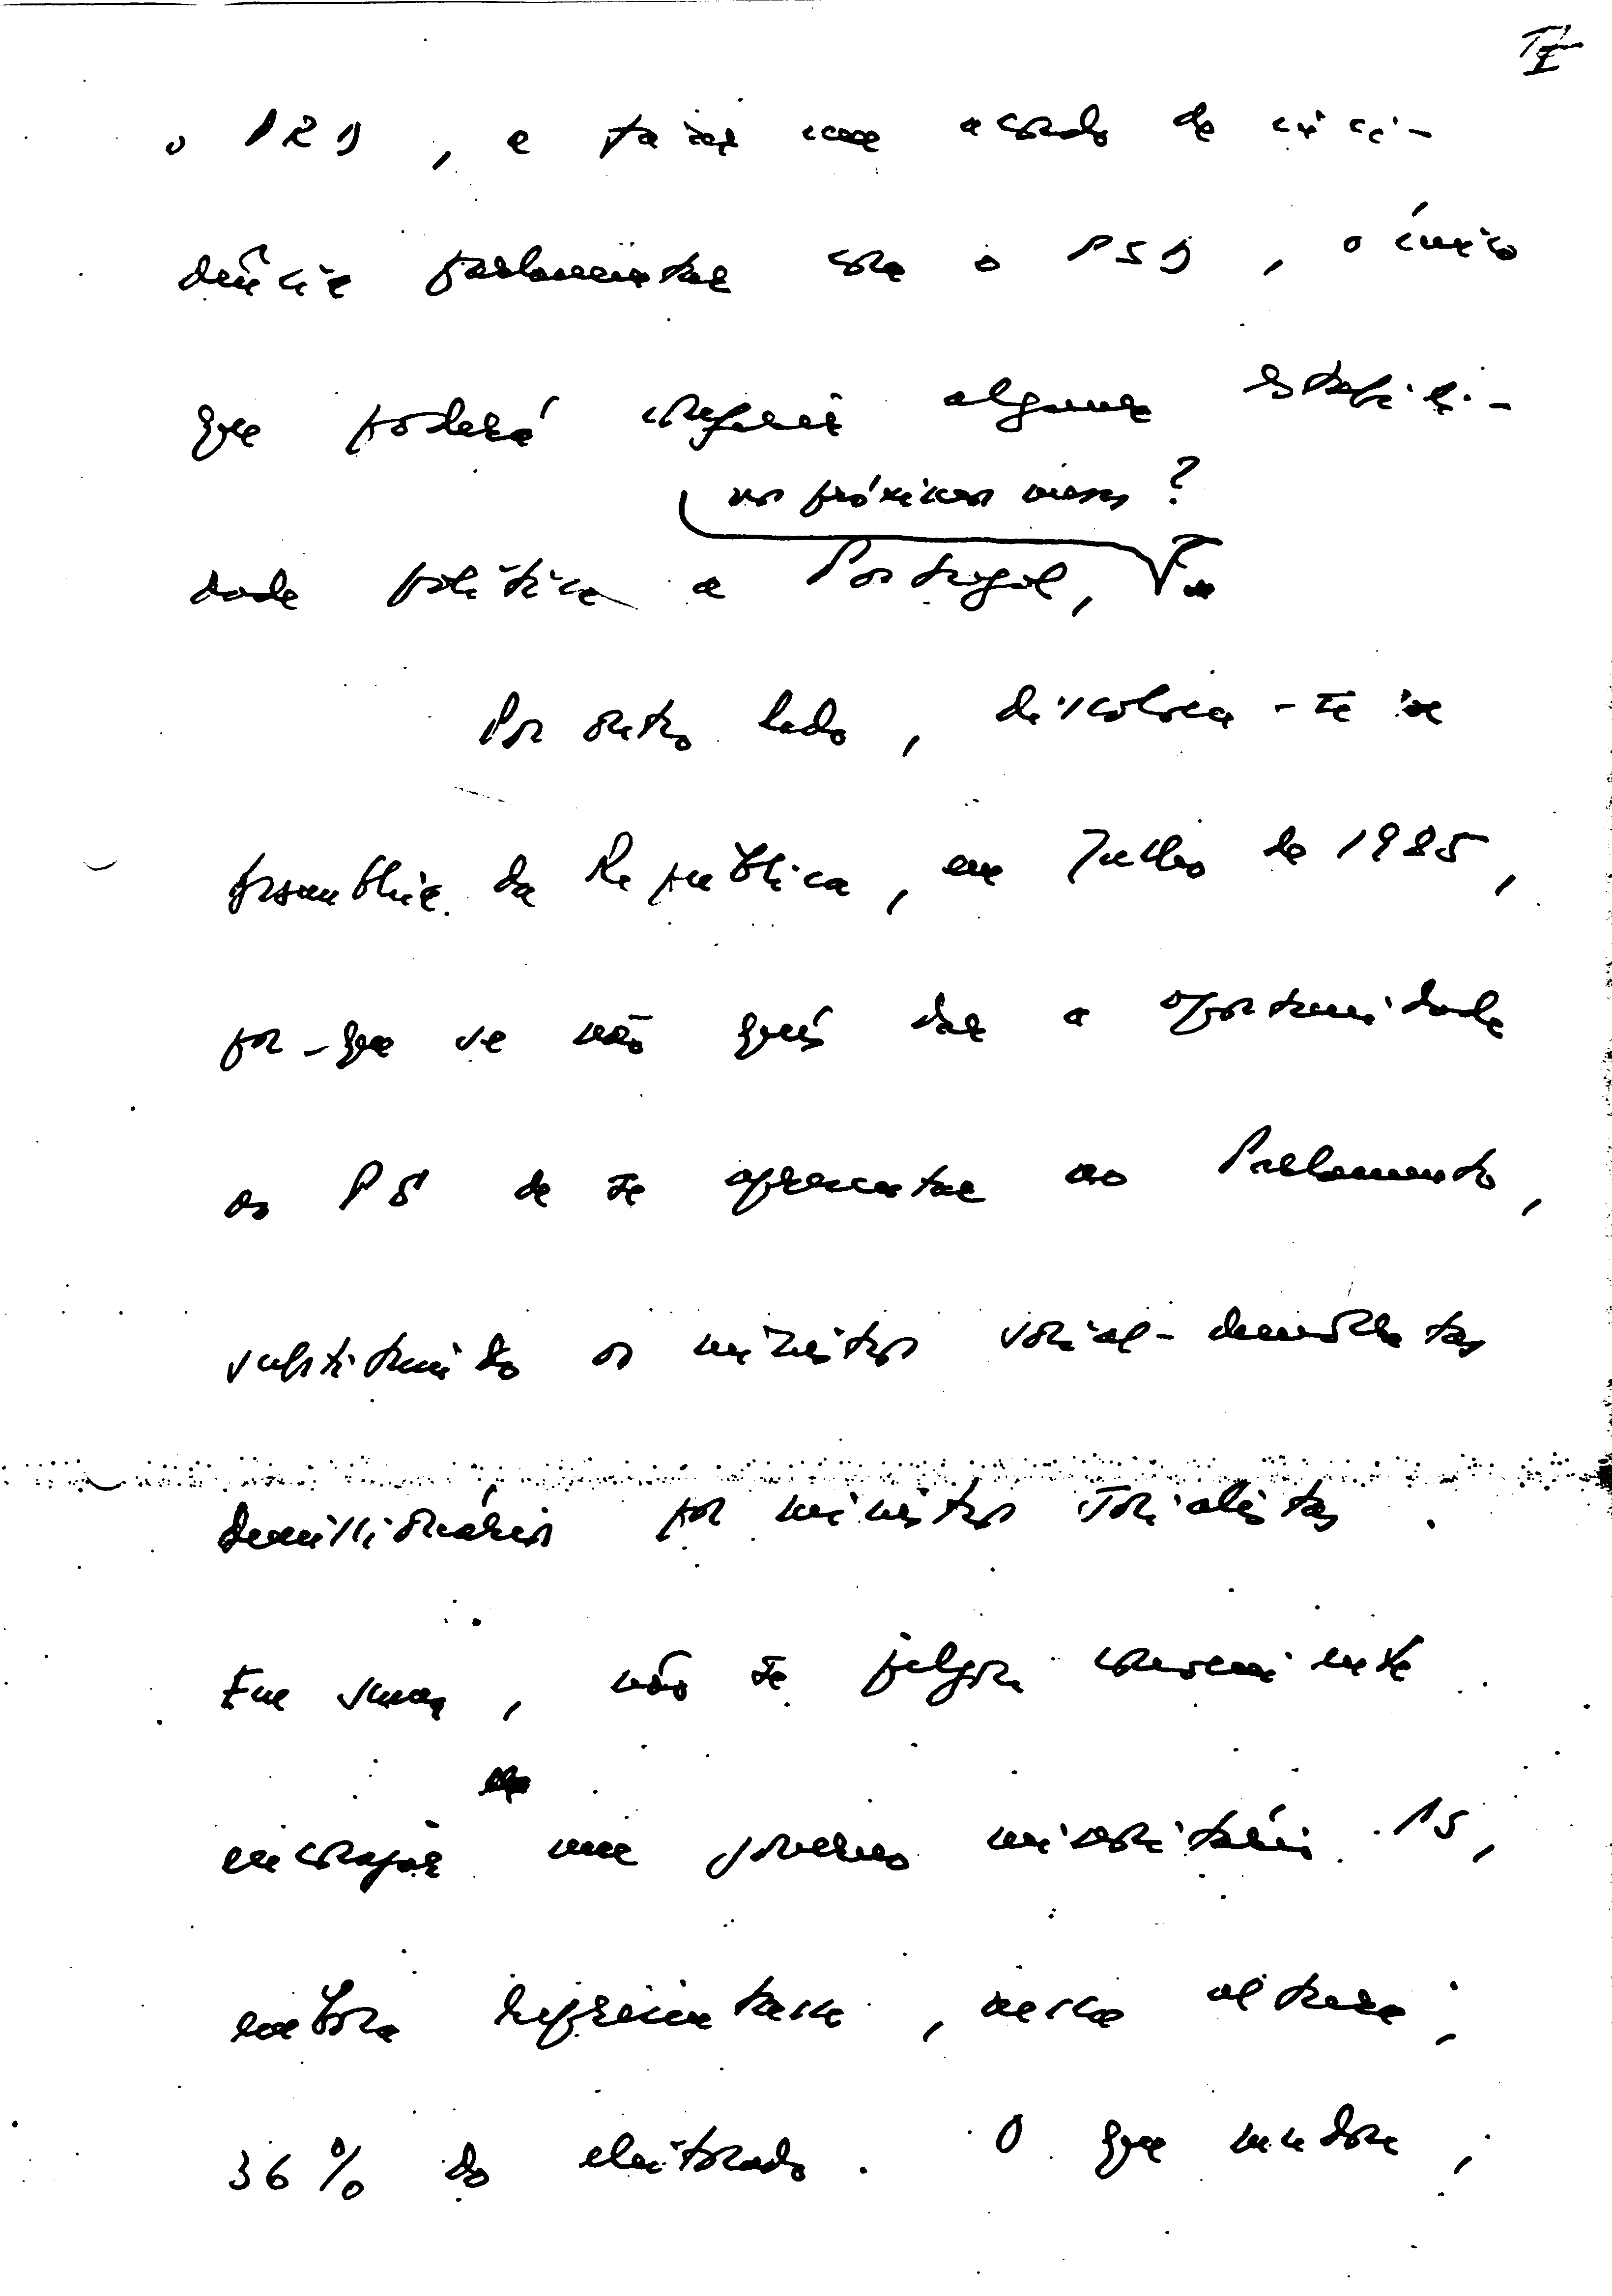 o PRD, e fazer um acordo de inci-
dência parlamentar com o PSD, o único
que poderá conferir alguma estabili-
nos próximos meses?
dade política a Portugal,
Por outro lado, dissolveu-se a
Assembleia da República, em Julho de 1985,
por-que se não quis dar a oportunidade
ao PS de se apresentar ao Parlamento,
substituindo os ministros social-democratas
demissionários por ministros socialistas.
Em suma, não se julgou conveniente
encorajar um governo minoritário PS,
embora representasse, nessa altura,
36% do eleitorado. O que mudou,